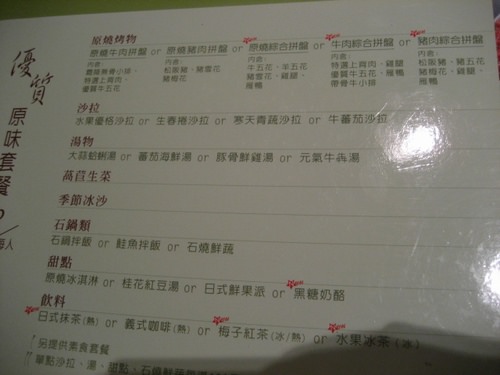 優質
原味套餐
/每人
原燒烤物
原燒牛肉拼盤 or 原燒豬肉拼盤 or 原燒綜合拼盤 or 牛肉綜合拼盤 or 豬肉綜合拼盤
內含:
霜降豬骨小排、
特選上肩肉、
優質牛五花
內含:
松阪豬、豬雪花
豬梅花
內含:
牛五花、羊五花
豬雪花、雞腿、
雁鴨
內含:
特選上肩肉、
優質牛五花、雁鴨
帶骨牛小排
內含:
松阪豬、豬五花
豬梅花、雞腿、
雁鴨
沙拉
水果優格沙拉 or 生春捲沙拉 or 寒天青蔬沙拉 or 牛蕃茄沙拉
湯物
大蒜蛤蜊湯 or 蕃茄海鮮湯 or 豚骨鮮雞湯 or 元氣牛犇湯
萵苣生菜
季節冰沙
石鍋類
石鍋拌飯 or 鮭魚拌飯 or 石燒鮮蔬
甜點
原燒冰淇淋 or 桂花紅豆湯 or 日式鮮果派 or 黑糖奶酪
飲料
日式抹茶(熱) or 義式咖啡(熱) or 梅子紅茶(冰/熱) or 水果冰茶(冰)
另提供素食套餐
單點沙拉、湯、甜點、石燒鮮蔬